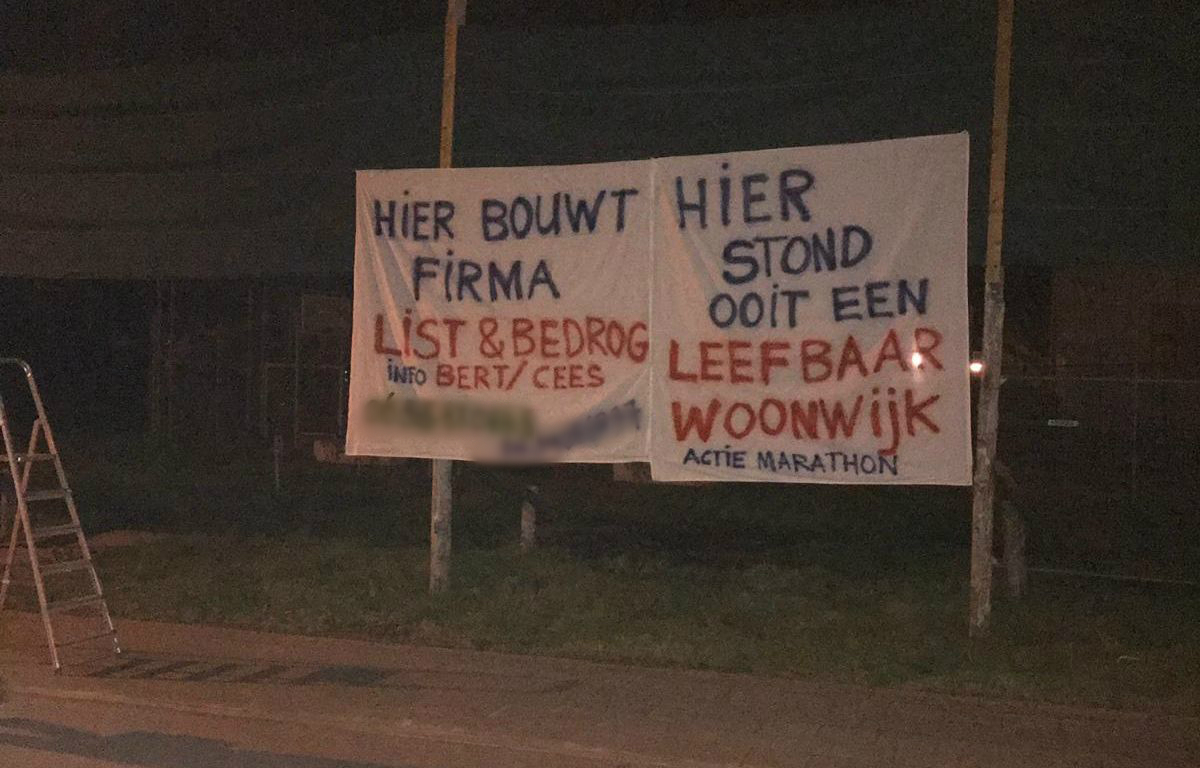 HIER BOUWT
FIRMA
LIST & BEDROG
INFO BERT/CEES
HIER
STOND
OOIT EEN
LEEFBAAR
WOONWIJK
ACTIE MARATHON